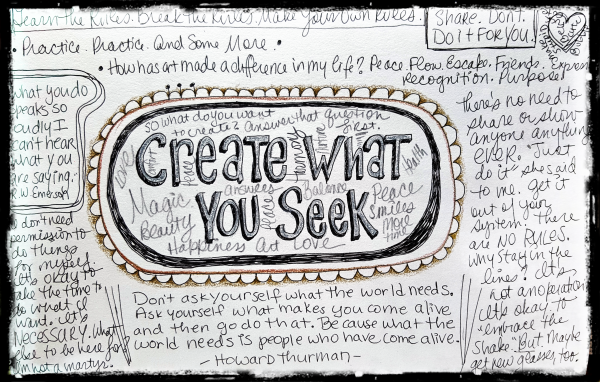 Learn the Rules. Break the Rules. Make Your Own Rules.
Share. Don't.
Do it FOR YOU!
• Practice. Practice. And Some More •
• How has art made a difference in my life? Peace. Flow. Escape. Friends. Express
recognition. Purpose
what you do
speaks so
loudly I
can't hear
what you
are saying.
R.W. Emerson
I don't need
permission to
do things
for myself.
It's okay to
take the time to
do what I
want. It's
NECESSARY. What
else to be here for
I'm not a martyr.
So what do you want
to create? Answer that question
first.
Create What
You Seek
Love
Peace
Harmony
Health
Magic
answers
Balance
Peace
Beauty
Peace
Smiles
more
time
Happiness Art Love
Don't ask yourself what the world needs.
Ask yourself what makes you come alive
and then go do that. Because what the
world needs is people who have come alive.
- Howard Thurman -
there's no need to
share or show
anyone anything
EVER. "Just
do it" she said
to me. get it
out of your
system. There
are NO RULES.
Why stay in the
lines? It's
not an operation
it's okay to
"embrace the
shake". But maybe
get new glasses, too.